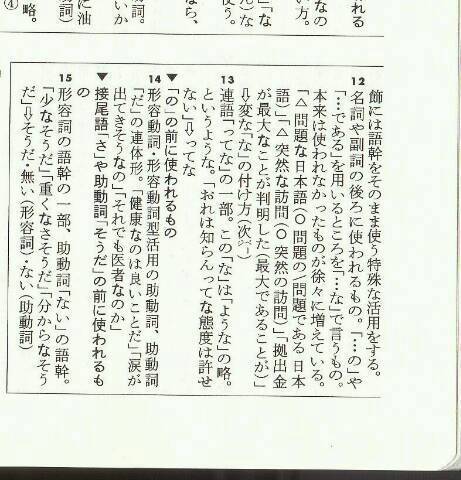 れる
なの
い方。
」「な
ん）な
使う。
なら、
動詞。
いか
に油
動詞）
略。
④
飾には語幹をそのまま使う特殊な活用をする。
12 名詞や副詞の後ろに使われるもの。「…の」や
「…である」を用いるところを「…な」で言うもの。
本来は使われなかったものが徐々に増えている。
「△問題な日本語（○問題の／問題である日本
語）」「△突然な訪問（○突然の訪問）」「拠出金
が最大なことが判明した（最大であることが）」
⇩変な「な」の付け方（次ページ）
13 連語「ってな」の一部。この「な」は「ような」の略。
というような。「おれは知らんってな態度は許せ
ない」⇩ってな
▼「の」の前に使われるもの
14 形容動詞・形容動詞型活用の助動詞、助動詞
「だ」の連体形。「健康なのは良いことだ」「涙が
出てきそうなの」「それでも医者なのか」
▼接尾語「さ」や助動詞「そうだ」の前に使われるも
の
15 形容詞の語幹の一部、助動詞「ない」の語幹。
「少なそうだ」「重くなさそうだ」「分からなそう
だ」⇩そうだ・無い（形容詞）・ない（助動詞）